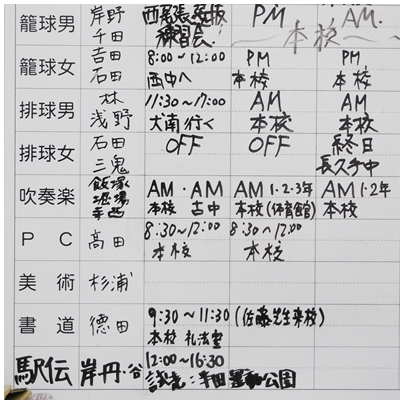 籠球男 岸野 千田 西尾張選抜 練習会 PM AM.
〜本校〜
籠球女 吉田 石田 8:00〜12:00 西中へ PM 本校 PM 本校
排球男 林 浅野 11:30〜17:00 大南行く AM 本校 AM 本校
排球女 石田 三鬼 OFF OFF 終日 長久手中
吹奏楽 飯塚 堀場 AM・AM 本校 古中 AM 1・2・3年 本校(体育館) AM 1・2年 本校
PC 高田 8:30〜12:00 本校 8:30〜12:00 本校
美術 杉浦
書道 徳田 9:30〜11:30 (佐藤先生来校) 本校 礼法室
駅伝 岸丹・谷 12:00〜16:30 試走:半田運動公園